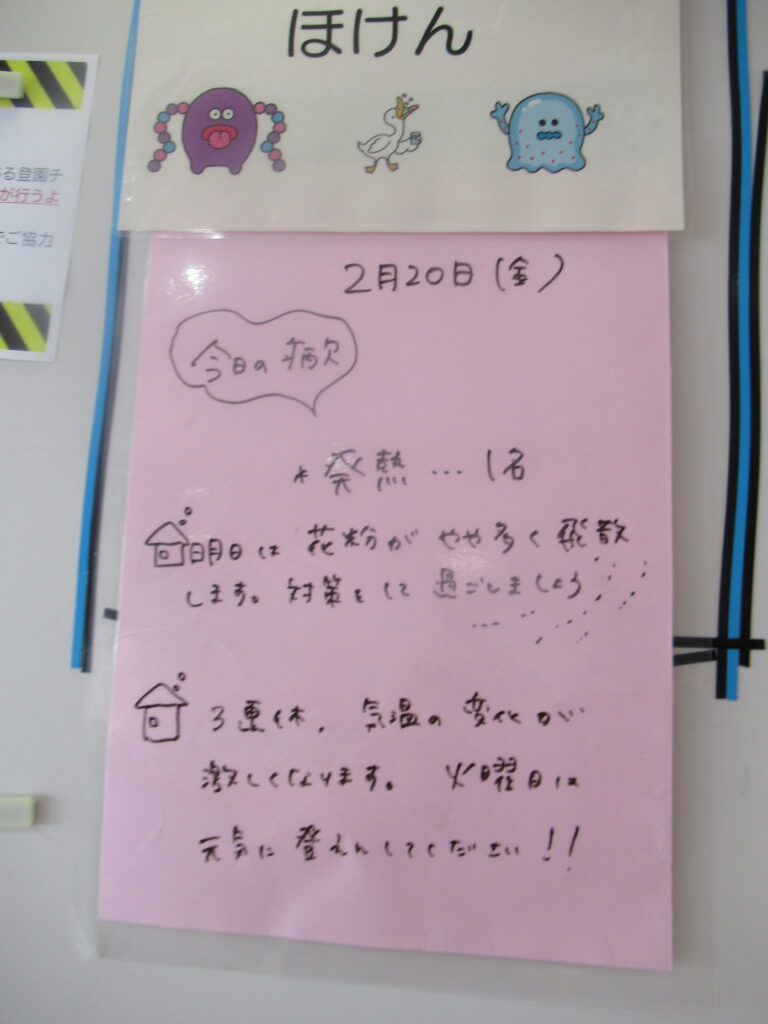 ほけん
る登園チ
が行うよ
でご協力
2月20日(金)
今日の病欠
* 発熱…1名
明日は 花粉が やや多く 飛散
します。対策をして 過ごしましょう
3連休、気温の変化が
激しくなります。火曜日は
元気に登えんしてください!!